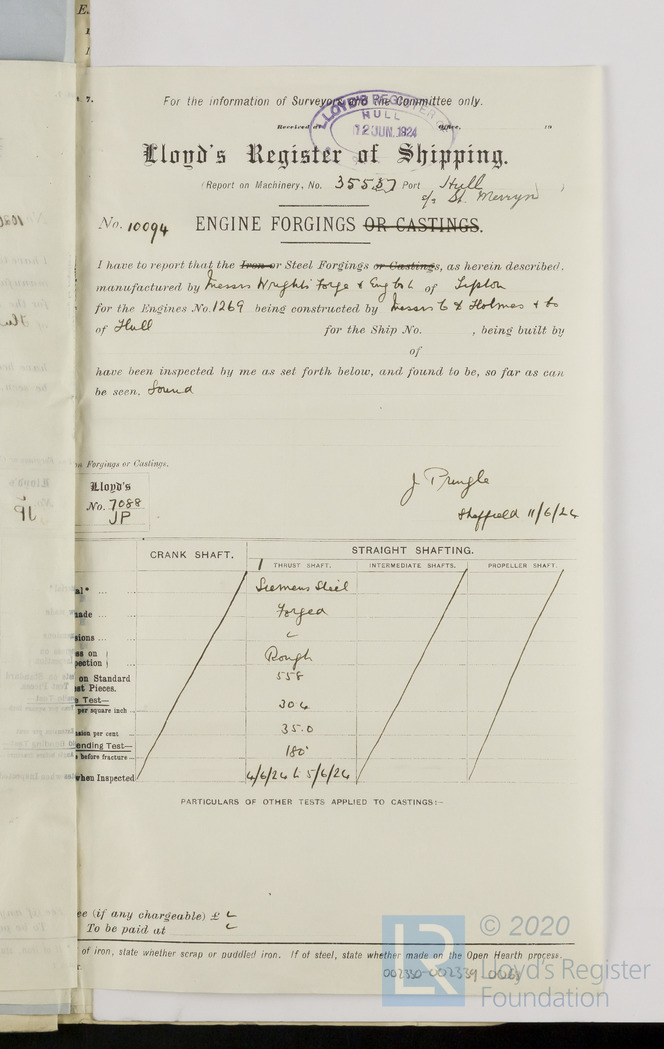 E.
. 7.
For the information of Surveyors and the Committee only.
LLOYD'S REGISTER
HULL
12 JUN. 1924
Received at Office, 19
Lloyd's Register of Shipping.
(Report on Machinery, No. 35537 Port Hull )
c/s St. Merryn
No. 10094 ENGINE FORGINGS OR CASTINGS.
I have to report that the Iron or Steel Forgings or Castings, as herein described,
manufactured by Messrs Wrights Forge & Eng Co L of Tipton
for the Engines No. 1269 being constructed by Messrs C D Holmes & Co
of Hull for the Ship No. , being built by
of
have been inspected by me as set forth below, and found to be, so far as can
be seen, Sound
Forgings or Castings.
Lloyd's
No. 7088
JP
J Pringle
Sheffield 11/6/24
CRANK SHAFT. STRAIGHT SHAFTING.
THRUST SHAFT. INTERMEDIATE SHAFTS. PROPELLER SHAFT.
al* ... ... Siemens Steel
made ... ... Forged
sions ... ...
ss on
pection Rough
on Standard 558
st Pieces.
e Test—
per square inch ... 30.6
nsion per cent ... 35.0
ending Test—
before fracture ... 180°
when Inspected 4/6/24 & 5/6/24
PARTICULARS OF OTHER TESTS APPLIED TO CASTINGS:—
ee (if any chargeable) £
To be paid at
of iron, state whether scrap or puddled iron. If of steel, state whether made on the Open Hearth process.
002330-002339 0068
© 2020
LR
Lloyd's Register
Foundation